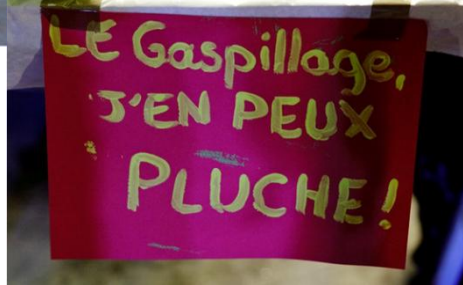 LE Gaspillage,
J'EN PEUX
PLUCHE !